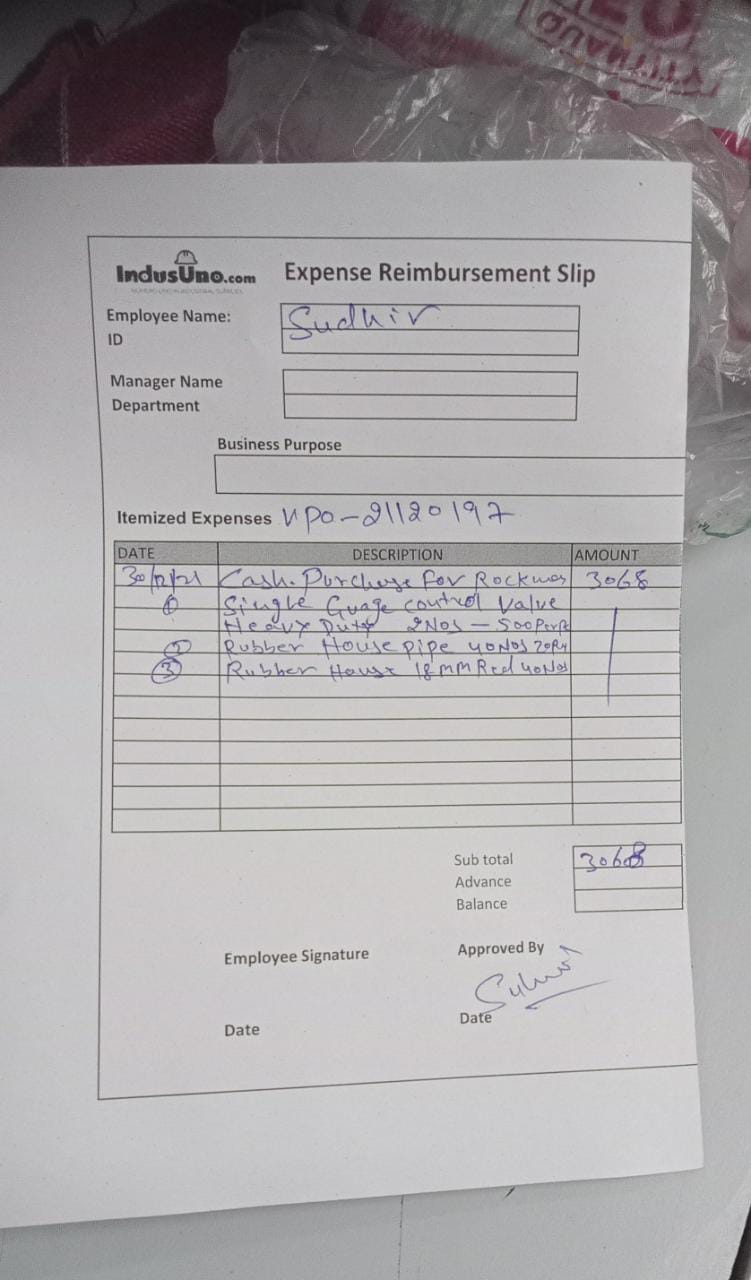 IndusUno.com
Expense Reimbursement Slip
Employee Name: Sudhir
ID
Manager Name
Department
Business Purpose
Itemized Expenses VPO-21120197
DATE DESCRIPTION AMOUNT
30/12/21 Cash. Purchase For Rockwos 3068
① Single Guage control Value
Heavy Duty 2Nos - 500 Per
② Rubber House pipe 40Nos
③ Rubber House 18MM Red 40Nos
Sub total 3068
Advance
Balance
Employee Signature Approved By
Date Date